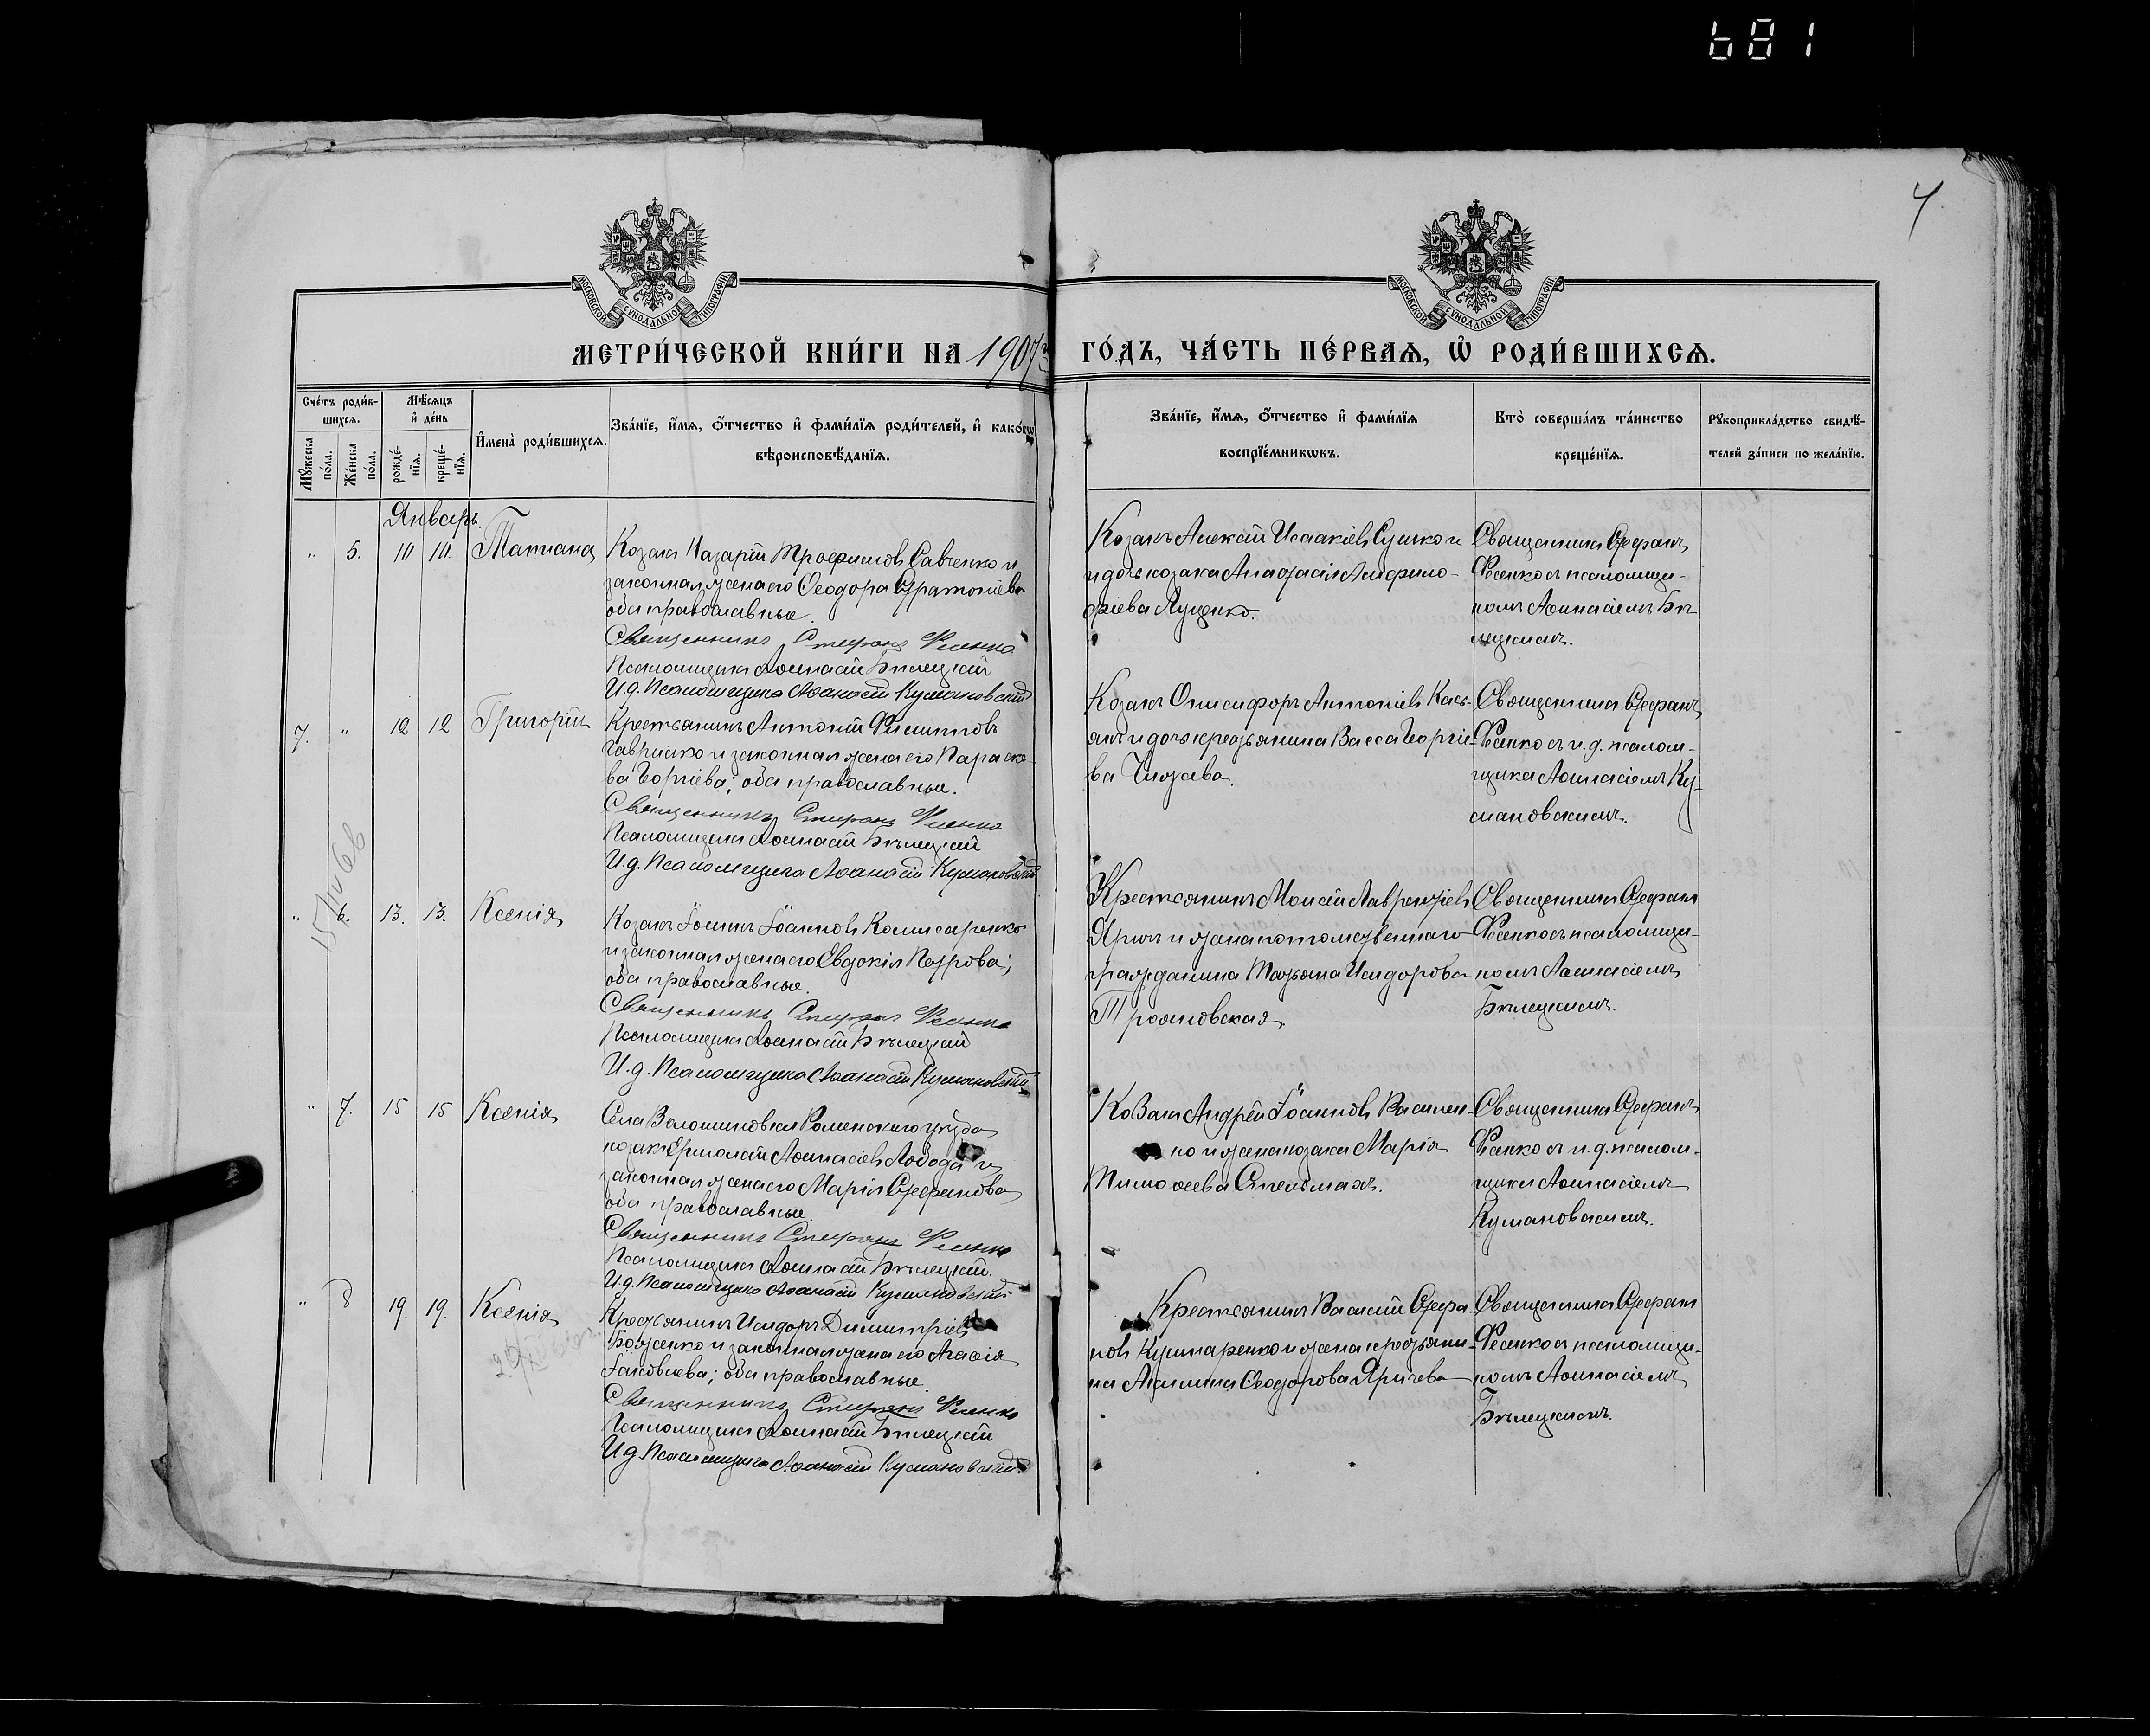 681
4
МЕТРИ́ЧЕСКОЙ КНИ́ГИ НА 1907й ГО́ДЪ, ЧА́СТЬ ПЕ́РВАѦ, Ѿ РОДИ́ВШИХСѦ.
Сче́тъ роди́в-
шихсѧ.
Мꙋ́жеска по́ла.
Же́нска по́ла.
Мѣ́сѧцъ
и҆ де́нь
рожде́-
нїѧ.
креще́-
нїѧ.
И҆мена̀ роди́вшихсѧ.
Зва́нїе, и҆́мѧ, о҆́тчество и҆ фами́лїѧ роди́телей, и҆ како́гѡ
вѣроисповѣ́данїѧ.
Зва́нїе, и҆́мѧ, о҆́тчество и҆ фами́лїѧ
воспрїе́мникѡвъ.
Кто̀ соверша́лъ та́инство
креще́нїѧ.
Рꙋкоприкла́дство свидѣ́-
телей за́писи по жела́нїю.
Январь.
" 5. 10 10. Татiана
Козакъ Назарiй Трофимовъ Савченко и
законная жена его Ѳеодора
оба православные.
Священникъ Стефанъ Фесенко
Псаломщикъ Аѳанасiй Бѣлецкiй
И.д. Псаломщика Аѳанасiй Кумановскiй
Козакъ Алексiй Исаакiевъ Сушко и
и дочь козака Анастасiя Амфило-
фiева Луценко.
Священникъ Стефанъ
Фесенко съ псаломщи-
комъ Аѳанасiемъ Бѣ-
лецкимъ.
7. " 12 12 Григорiй
Крестьянинъ Антонiй Филиптовъ
Гавриско и законная жена его Параске-
ва Георгiева; оба православные.
Священникъ Стефанъ Фесенко
Псаломщикъ Аѳанасiй Бѣлецкiй
И.д. Псаломщика Аѳанасiй Кумановскiй
Козакъ Онисифоръ Антонiевъ Кась-
янъ и дочь крестьянина Васса Георгiе-
ва Чижева.
Священникъ Стефанъ
Фесенко съ и.д. псалом-
щика Аѳанасiемъ Ку-
мановскимъ.
" 6. 13. 13. Ксенiя
Козакъ Iоаннъ Iоанновъ Комисаренко
и законная жена его Евдокiя Петрова;
оба православные.
Священникъ Стефанъ Фесенко
Псаломщикъ Аѳанасiй Бѣлецкiй
И.д. Псаломщика Аѳанасiй Кумановскiй
Крестьянинъ Моисiй Лаврентiевъ
Яричъ и жена потомственнаго
гражданина Татьяна Исидорова
Трояновская.
Священникъ Стефанъ
Фесенко съ псаломщи-
комъ Аѳанасiемъ
Бѣлецкимъ.
" 7. 15 15 Ксенiя
Села Волошиновки Роменскаго уѣзда
козакъ Ермолай Аѳанасiевъ Лобода и
законная жена его Марiя Стефанова
оба православные.
Священникъ Стефанъ Фесенко
Псаломщикъ Аѳанасiй Бѣлецкiй.
И.д. Псаломщика Аѳанасiй Кумановскiй
Козакъ Андрей Iоанновъ Василен-
ко и жена козака Марiя
Тимоѳеева Стельмахъ.
Священникъ Стефанъ
Фесенко съ и.д. псалом-
щика Аѳанасiемъ
Кумановскимъ.
" 8 19. 19. Ксенiя
Крестьянинъ Исидоръ Димитрiевъ
Боженко и законная жена его Агафiя
Iаковлева; оба православные.
Священникъ Стефанъ Фесенко
Псаломщикъ Аѳанасiй Бѣлецкiй
И.д. Псаломщика Аѳанасiй Кумановскiй
Крестьянинъ Василiй Стефа-
новъ Кушнаренко и жена крестьяни-
на Акилина Ѳеодорова Яричева
Священникъ Стефанъ
Фесенко съ псаломщи-
комъ Аѳанасiемъ
Бѣлецкимъ.